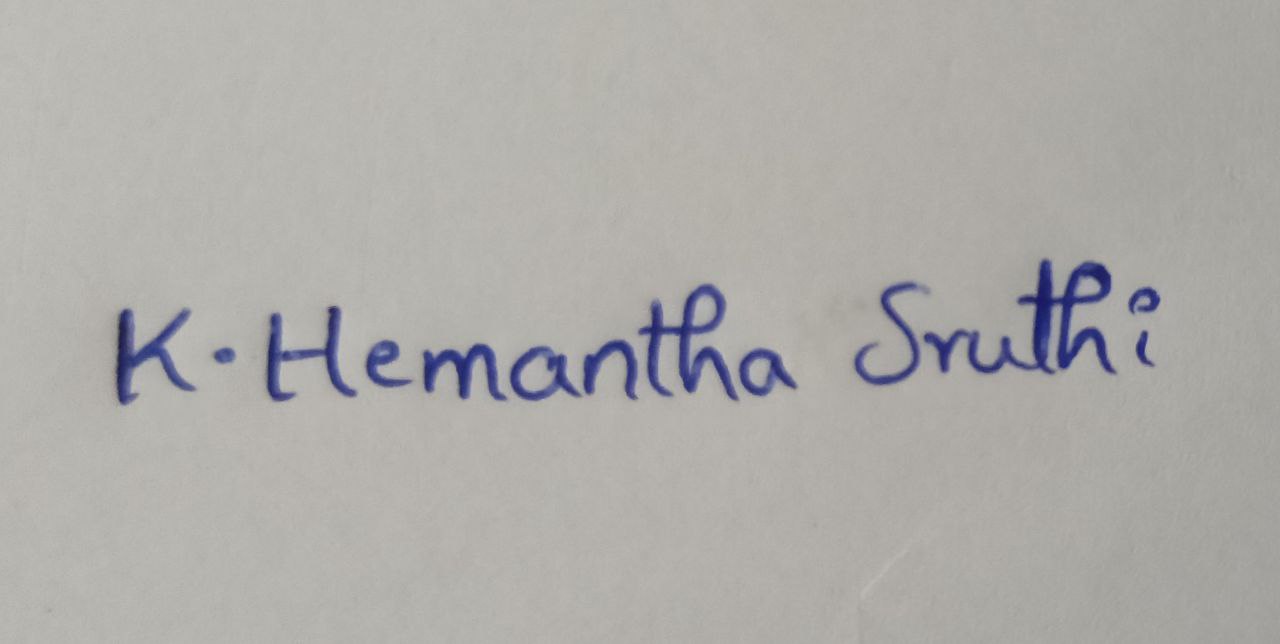 K. Hemantha Sruthi